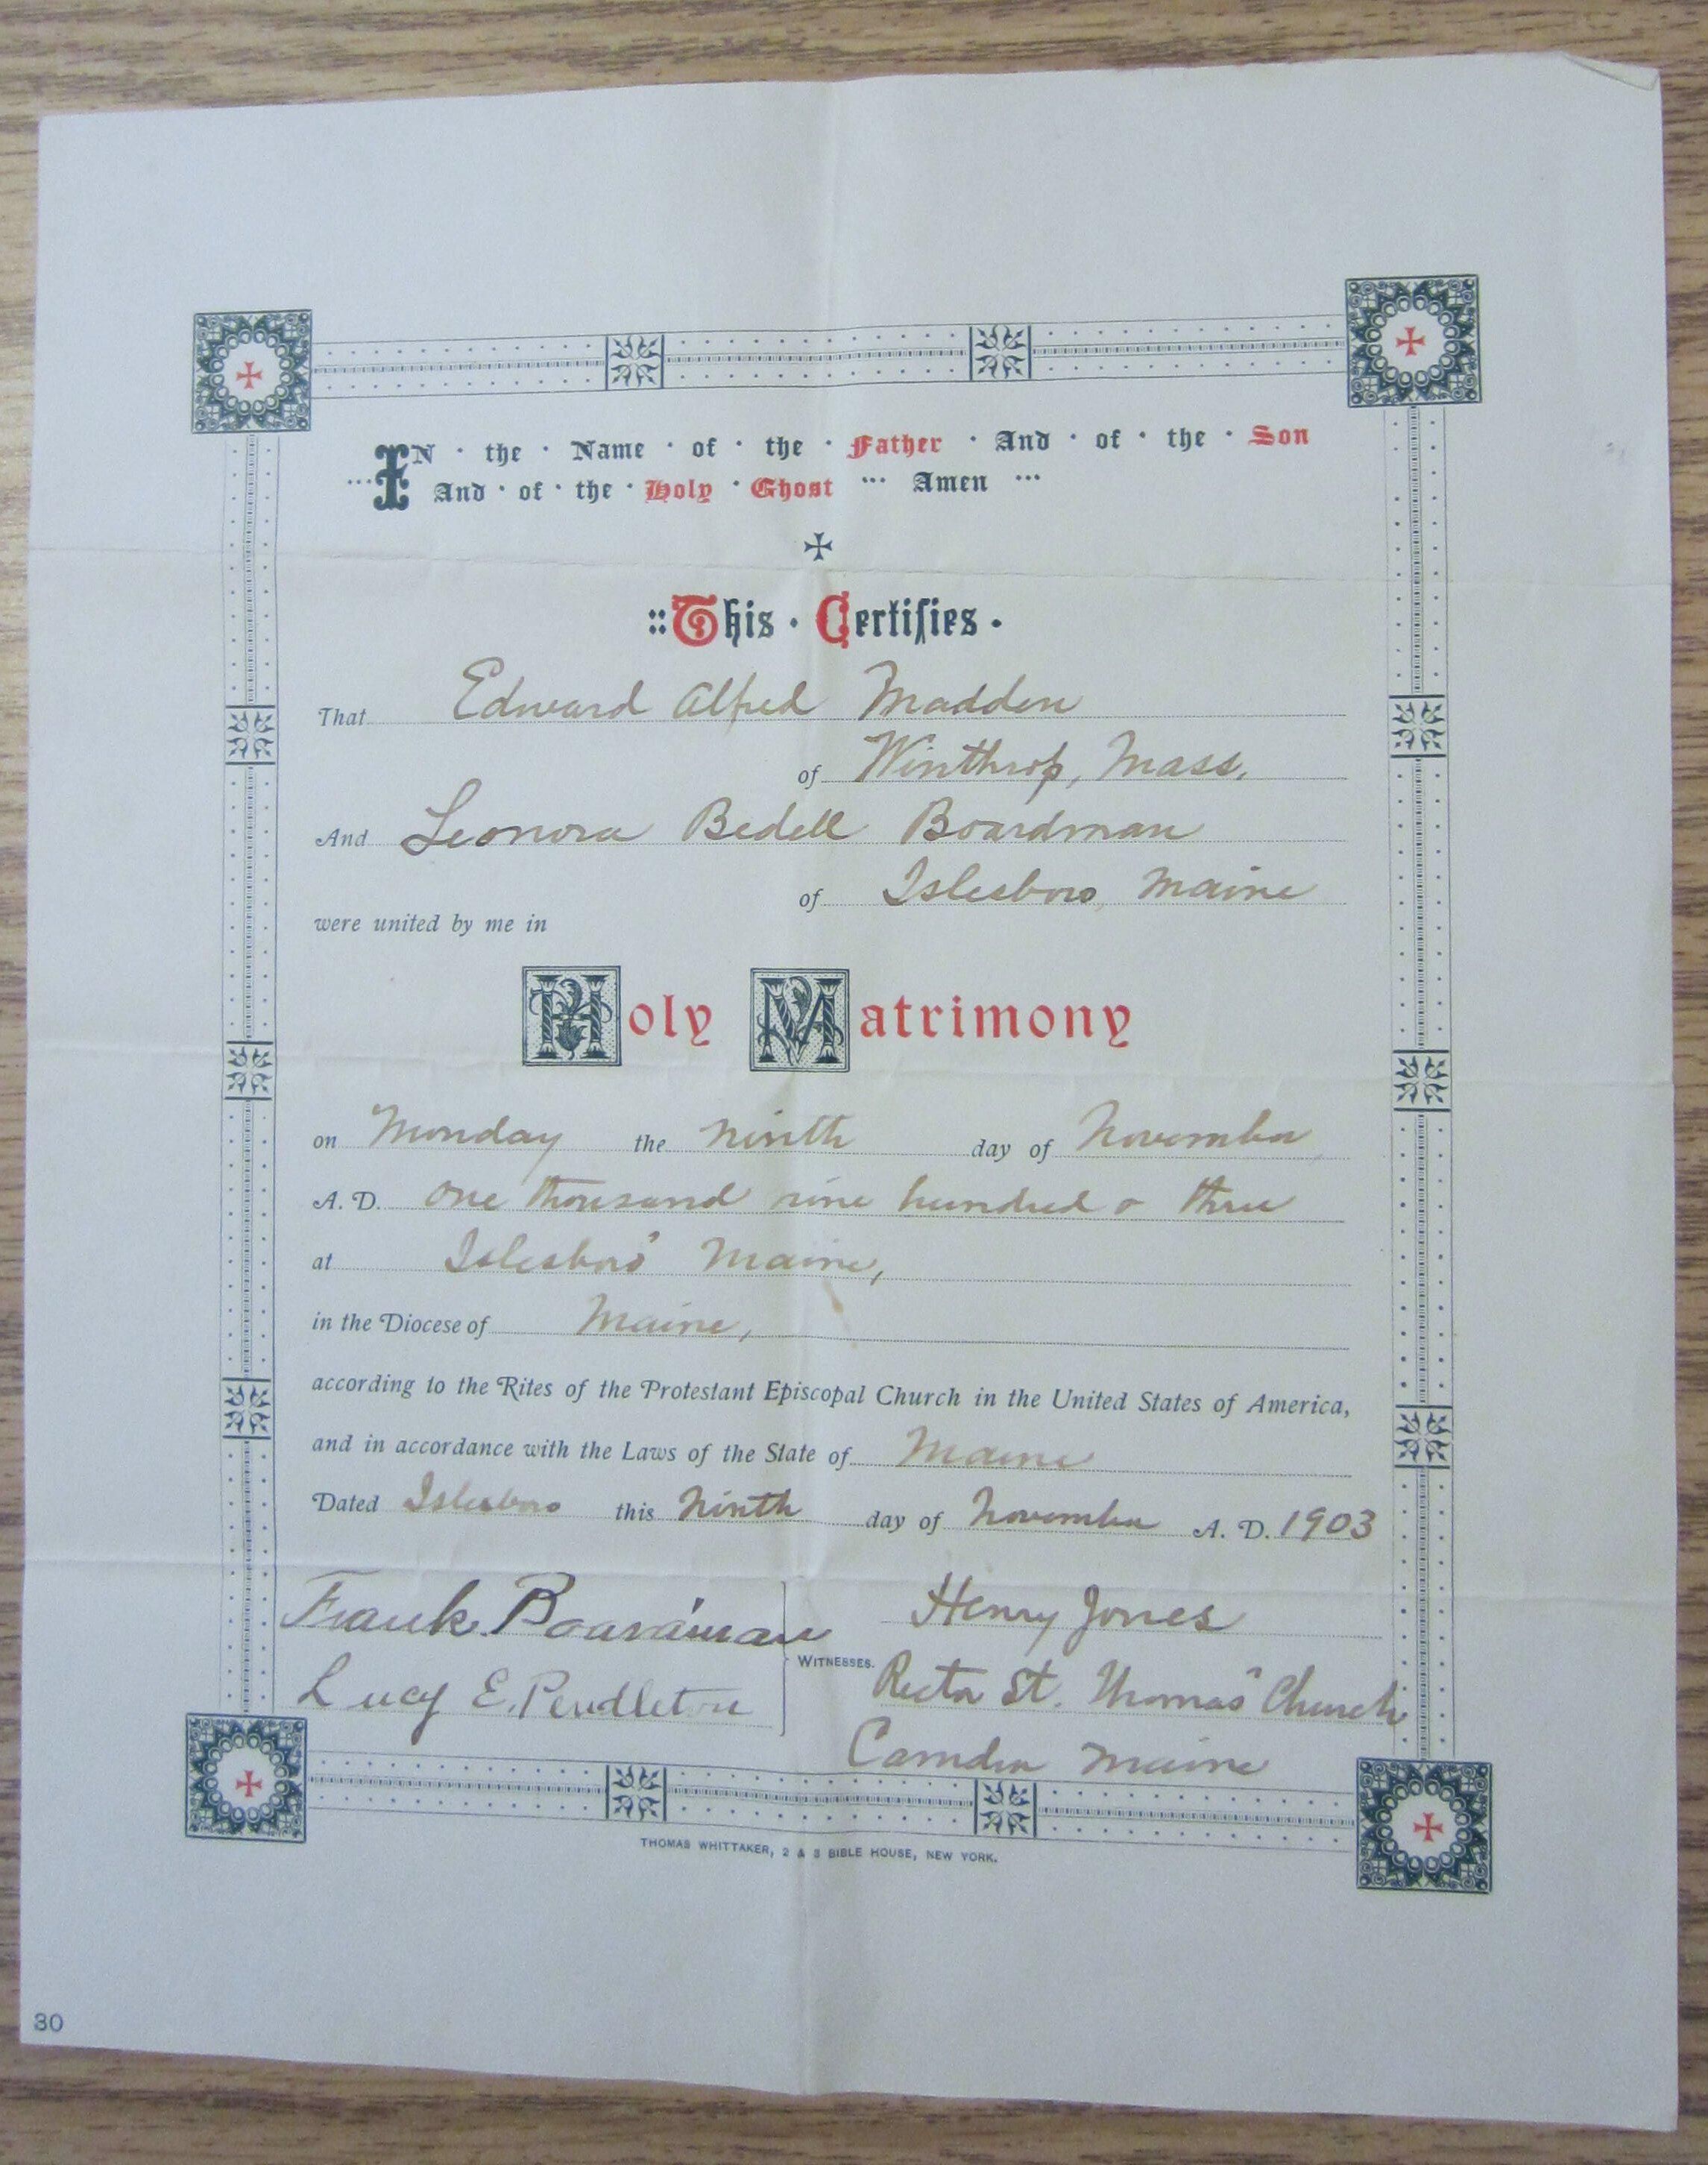 IN · the · Name · of · the · Father · And · of · the · Son
··· And · of · the · Holy · Ghost ··· Amen ···
::This · Certifies ·
That Edward Alfred Madden
of Winthrop, Mass.
And Leonora Bedell Boardman
of Islesboro, Maine
were united by me in
Holy Matrimony
on Monday the ninth day of November
A. D. one thousand nine hundred & three
at Islesboro' Maine,
in the Diocese of Maine,
according to the Rites of the Protestant Episcopal Church in the United States of America,
and in accordance with the Laws of the State of Maine
Dated Islesboro this Ninth day of November A. D. 1903
Frank Boardman Henry Jones
WITNESSES.
Lucy E. Pendleton Rector St. Thomas' Church
Camden Maine
THOMAS WHITTAKER, 2 & 3 BIBLE HOUSE, NEW YORK.
30